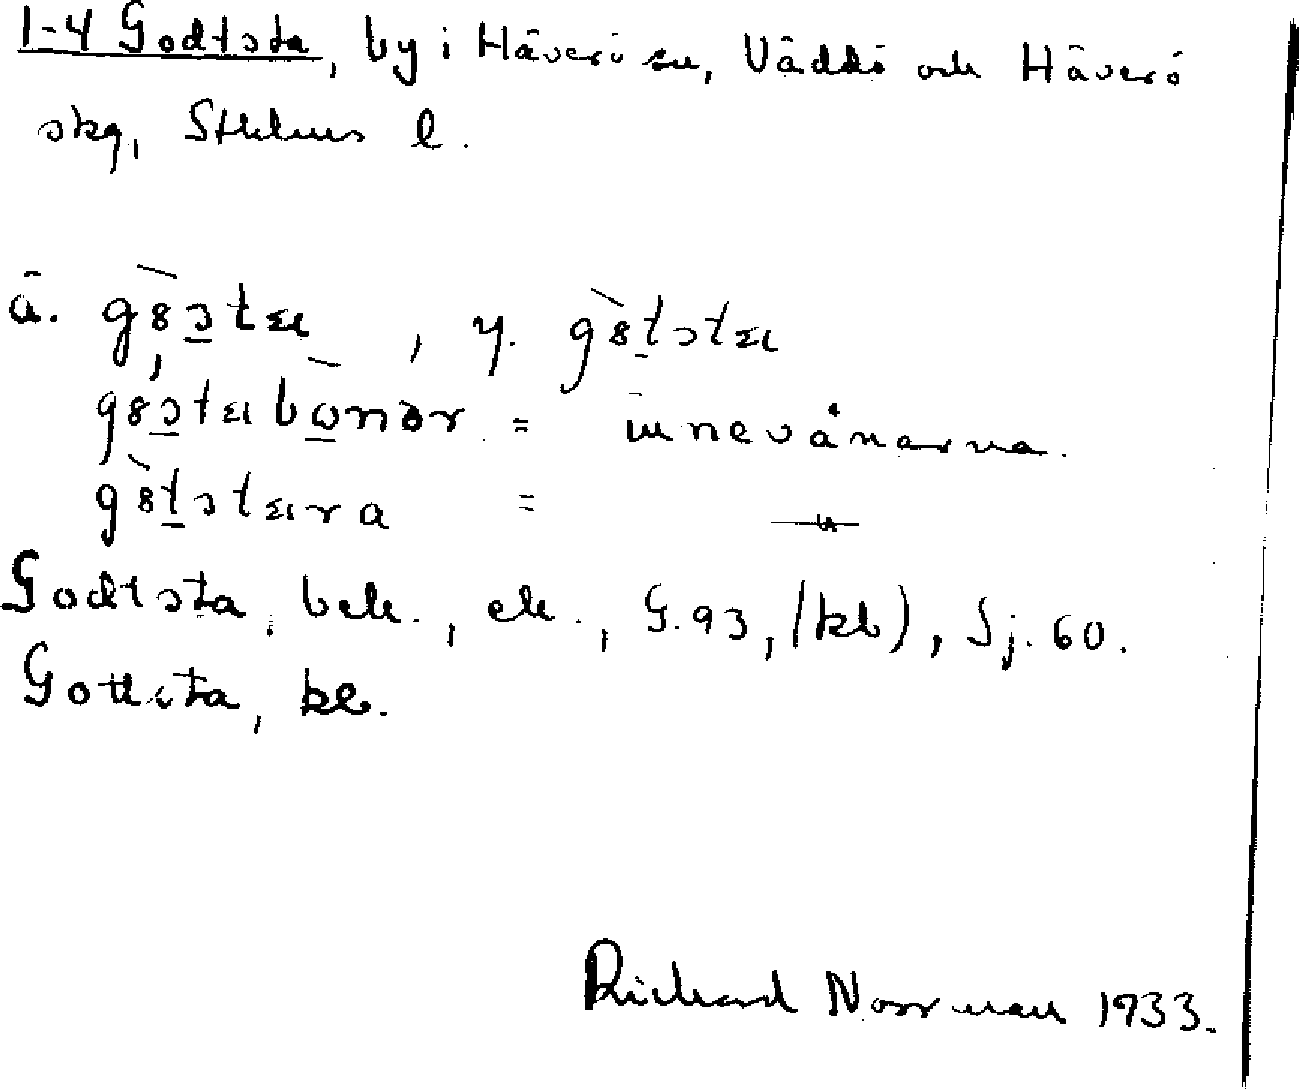 1-4 Godtsta, by i Häverö sn, Väddö och Häverö
skg, Sthlms l.
ä. gös̲ta, y. göt̲sta
gös̲tabo̲nər = innevånarna.
göt̲stara = —"—
Godtsta, bek., ek., G.93, (kb), Jj. 60.
Gottsta, kb.
Richard Norrman 1933.